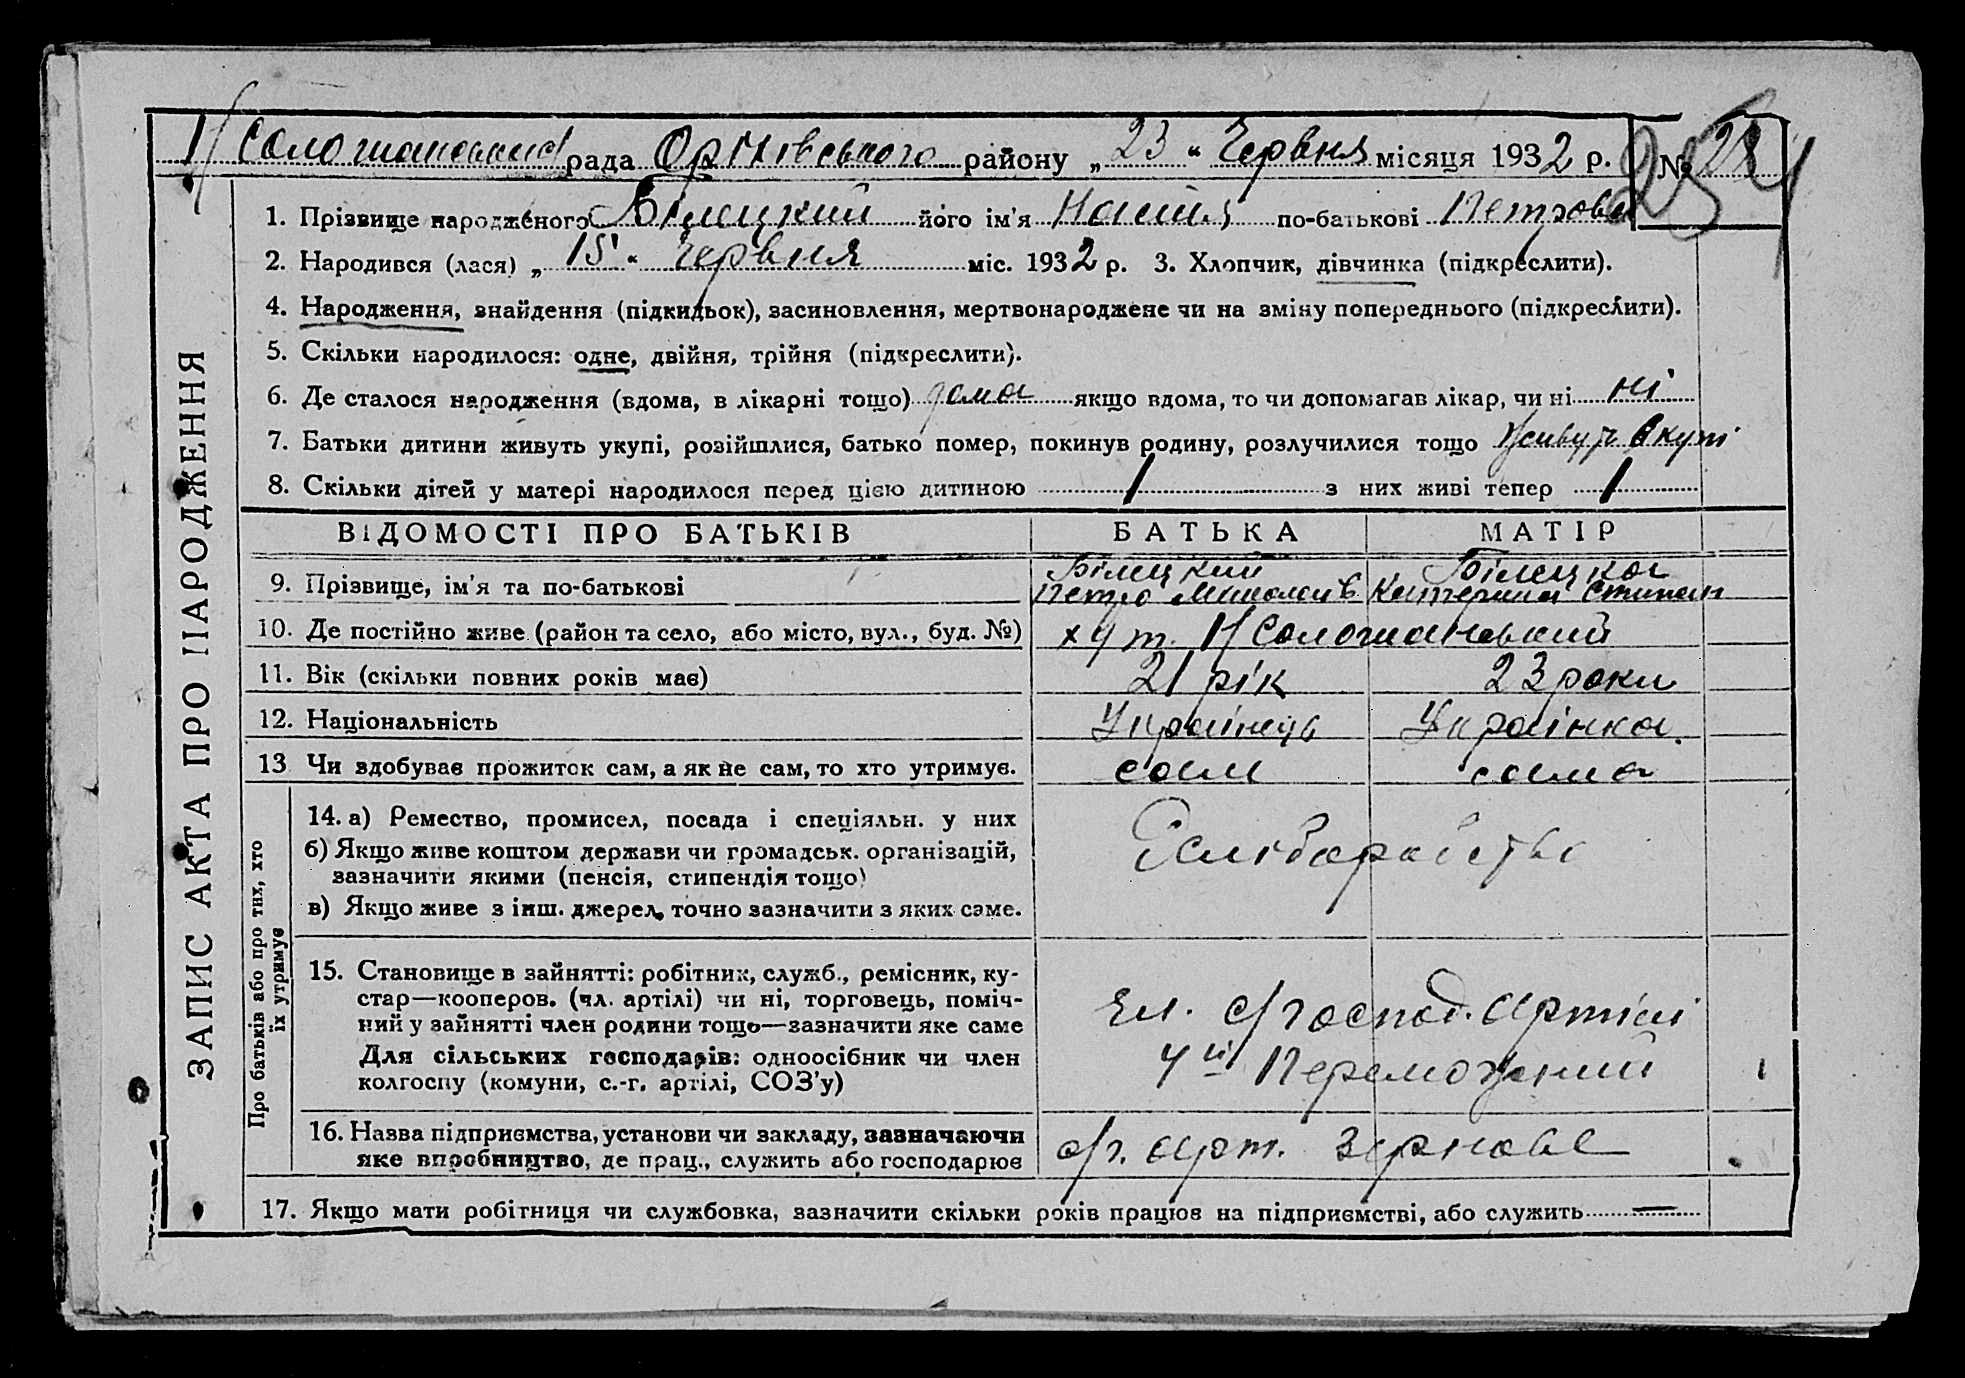 Н/Солошанська рада Оріхівського району „23“ Червня місяця 1932 р. № 28
254
ЗАПИС АКТА ПРО НАРОДЖЕННЯ
1. Прізвище народженого Білецкий його ім'я по-батькові Петрова
2. Народився (лася) „15“ Червня міс. 1932 р. 3. Хлопчик, дівчинка (підкреслити).
4. Народження, знайдення (підкидьок), засиновлення, мертвонароджене чи на зміну попереднього (підкреслити).
5. Скільки народилося: одне, двійня, трійня (підкреслити).
6. Де сталося народження (вдома, в лікарні тощо) дома якщо вдома, то чи допомагав лікар, чи ні ні
7. Батьки дитини живуть укупі, розійшлися, батько помер, покинув родину, розлучилися тощо Живуть вкупі
8. Скільки дітей у матері народилося перед цією дитиною 1 з них живі тепер 1
ВІДОМОСТІ ПРО БАТЬКІВ БАТЬКА МАТІР
Білецкий Білецка
9. Прізвище, ім'я та по-батькові Петро Миколаїв Катерина Степан
10. Де постійно живе (район та село, або місто, вул., буд. №) хут. Н/Солошанський
11. Вік (скільки повних років має) 21 рік 23 роки
12. Національність Українець Українка
13 Чи здобував прожиток сам, а як не сам, то хто утримує. сам сама
Про батьків або про тих, хто їх утримує
14. а) Ремество, промисел, посада і спеціяльн. у них
б) Якщо живе коштом держави чи громадськ. організацій,
зазначити якими (пенсія, стипендія тощо)
в) Якщо живе з інш. джерел, точно зазначити з яких саме.
15. Становище в зайнятті: робітник, служб., ремісник, ку-
стар—кооперов. (чл. артілі) чи ні, торговець, поміч-
ний у зайнятті член родини тощо—зазначити яке саме
Для сільських господарів: одноосібник чи член
колгоспу (комуни, с.-г. артілі, СОЗ'у)
Чл. с/господ. артілі
Переможний
16. Назва підприємства, установи чи закладу, зазначаючи
яке виробництво, де прац., служить або господарює
с/г. арт. зернове
17. Якщо мати робітниця чи службовка, зазначити скільки років працює на підприємстві, або служить —